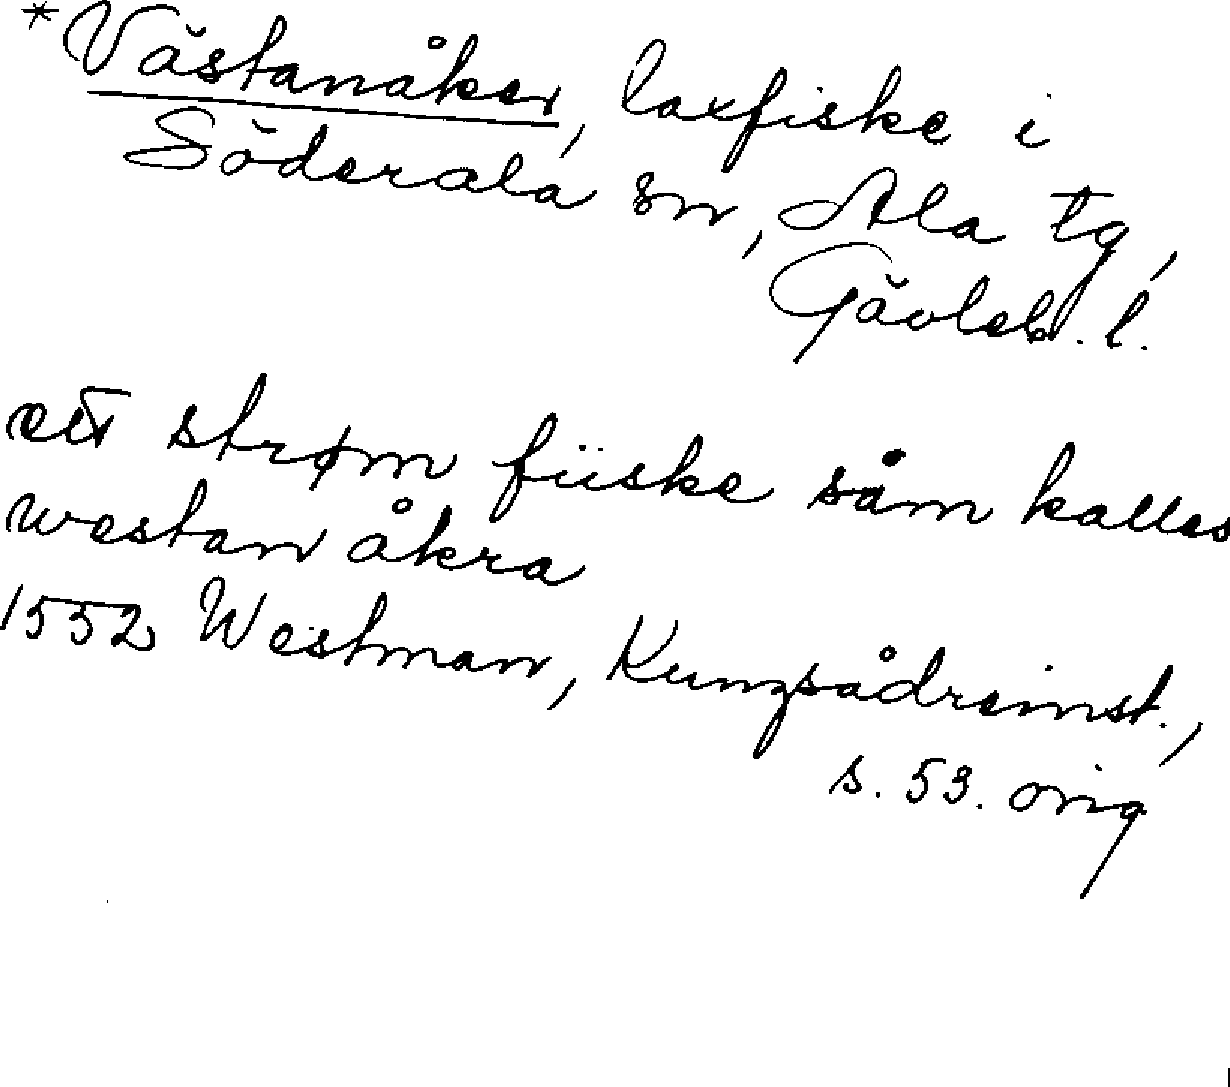 *Västanåker, laxfiske i
Söderala sn, Ala tg,
Gävleb. l.
ett strøm fiiske såm kalles
westan åkra
1552 Westman, Kungsådreinst.,
s. 53. orig